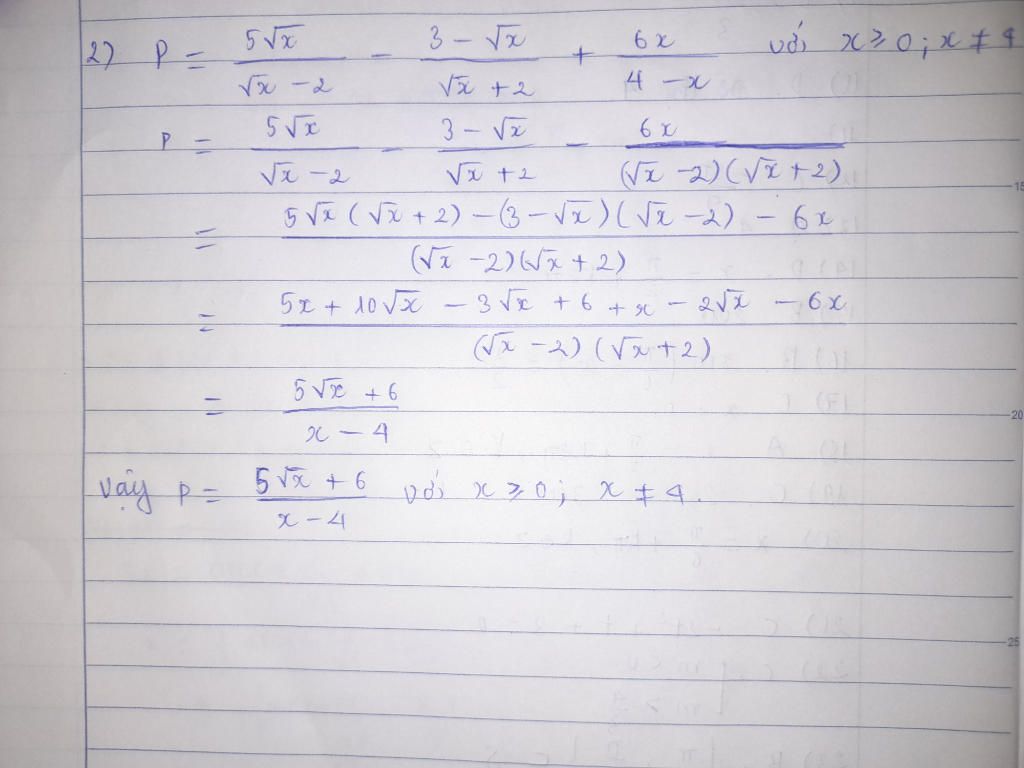 2) P = 5√x / (√x - 2) - (3 - √x) / (√x + 2) + 6x / (4 - x) với x ≥ 0 ; x ≠ 4
P = 5√x / (√x - 2) - (3 - √x) / (√x + 2) - 6x / ((√x - 2)(√x + 2))
= (5√x (√x + 2) - (3 - √x)(√x - 2) - 6x) / ((√x - 2)(√x + 2))
= (5x + 10√x - 3√x + 6 + x - 2√x - 6x) / ((√x - 2)(√x + 2))
= (5√x + 6) / (x - 4)
Vậy P = (5√x + 6) / (x - 4) với x ≥ 0 ; x ≠ 4.
15
20
25